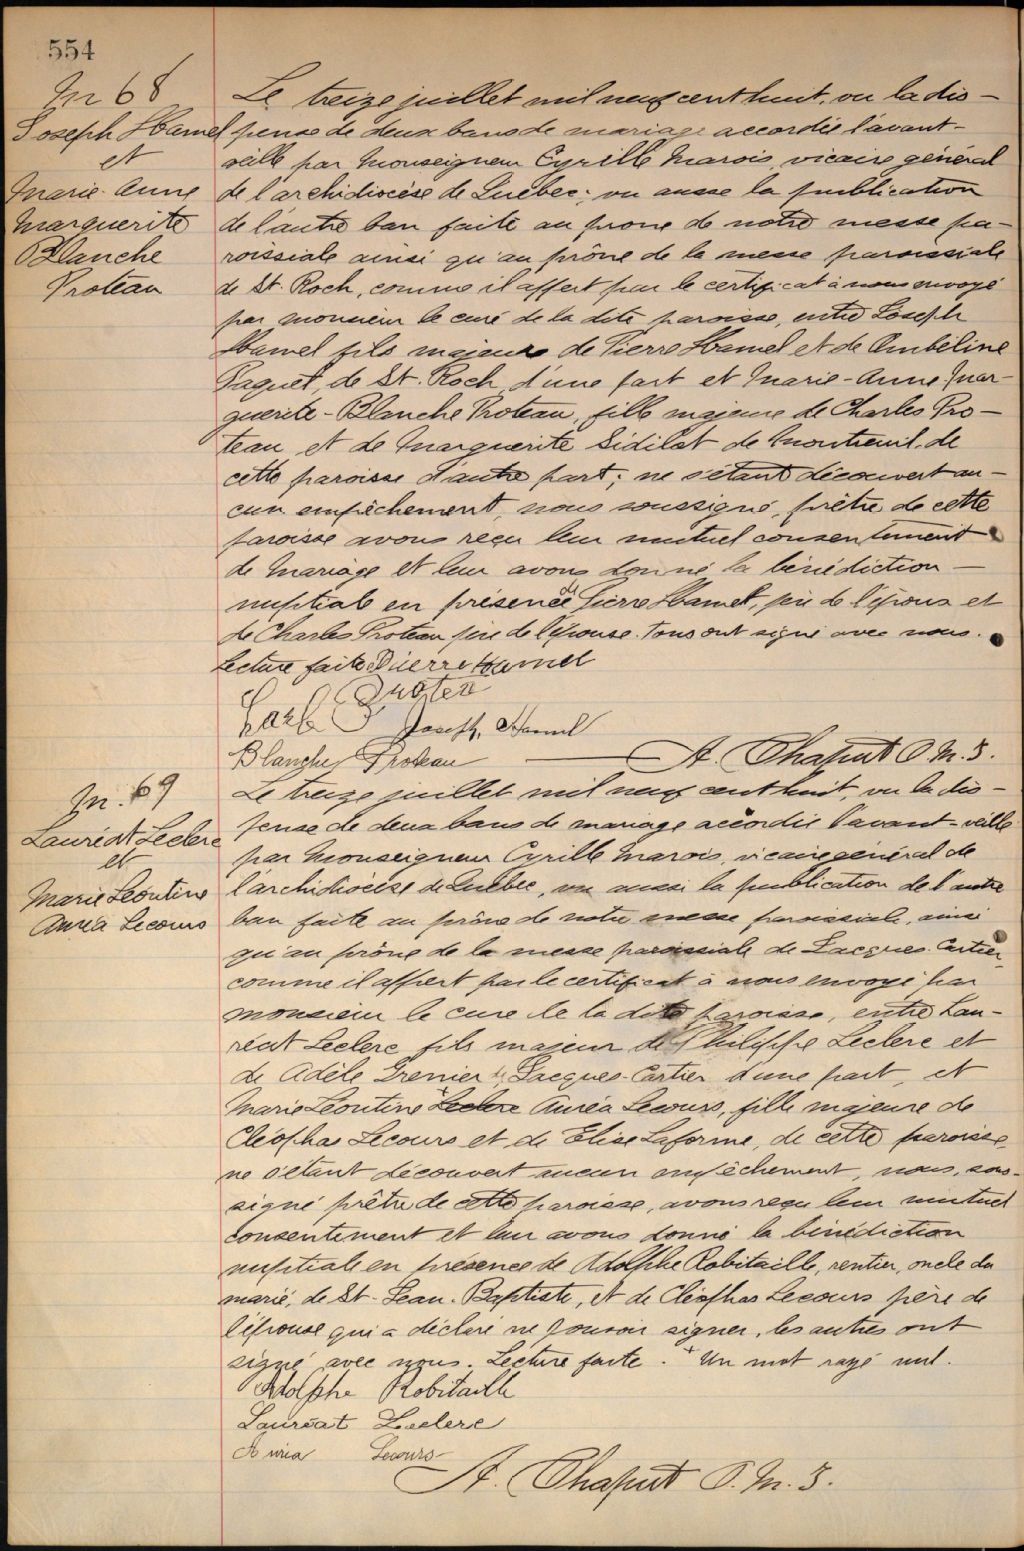 554
M 68
Joseph Hamel
et
Marie-Anne
Marguerite
Blanche
Proteau
Le treize juillet mil neuf cent huit, vu la dis-
pense de deux bans de mariage accordée l'avant-
veille par Monseigneur Cyrille Marois vicaire général
de l'archidiocèse de Québec; vu aussi la publication
de l'autre ban faite au prone de notre messe pa-
roissiale ainsi qu'au prône de la messe paroissiale
de St. Roch, comme il appert par le certificat à nous envoyé
par monsieur le curé de la dite paroisse, entre Joseph
Hamel fils majeur de Pierre Hamel et de Ombeline
Paquet, de St. Roch, d'une part et Marie-Anne Mar-
guerite-Blanche Proteau, fille majeure de Charles Pro-
teau et de Marguerite Sidilot de Montreuil, de
cette paroisse d'autre part; ne s'étant découvert au-
cun empêchement, nous soussigné, prêtre de cette
paroisse avons reçu leur mutuel consentement
de mariage et leur avons donné la bénédiction
nuptiale en présence de Pierre Hamel, père de l'époux et
de Charles Proteau père de l'épouse. Tous ont signé avec nous.
Lecture faite. Pierre Hamel
Proteau
Joseph Hamel
Blanche Proteau A. Chaput O.M.I.
M. 69
Lauréat Leclerc
et
Marie Léontine
Auréa Lecours
Le treize juillet mil neuf cent huit, vu la dis-
pense de deux bans de mariage accordée l'avant-veille
par Monseigneur Cyrille Marois, vicaire général de
l'archidiocèse de Québec, vu aussi la publication de l'autre
ban faite au prône de notre messe paroissiale, ainsi
qu'au prône de la messe paroissiale de Jacques-Cartier,
comme il appert par le certificat à nous envoyé par
monsieur le curé de la dite paroisse, entre Lau-
réat Leclerc fils majeur de Philippe Leclerc et
de Adèle Grenier de Jacques-Cartier d'une part, et
Marie Léontine + Leclerc Auréa Lecours, fille majeure de
Cléophas Lecours et de Elise Laforme, de cette paroisse,
ne s'étant découvert aucun empêchement, nous, sous-
signé prêtre de cette paroisse, avons reçu leur mutuel
consentement et leur avons donné la bénédiction
nuptiale en présence de Adolphe Robitaille, rentier, oncle du
marié, de St-Jean-Baptiste, et de Cléophas Lecours père de
l'épouse qui a déclaré ne pouvoir signer, les autres ont
signé avec nous. Lecture faite. + Un mot rayé nul.
Adolphe Robitaille
Lauréat Leclerc
Auréa Lecours
A. Chaput O.M.I.